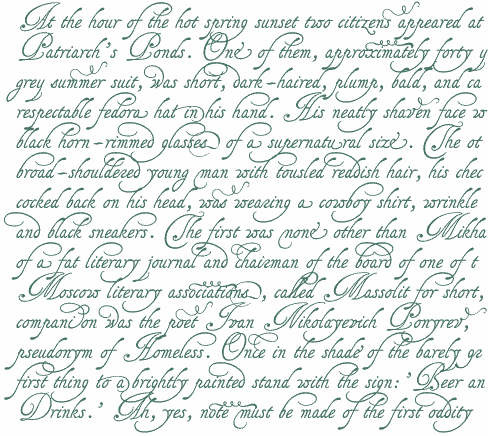 At the hour of the hot spring sunset two citizens appeared at
Patriarch's Ponds. One of them, approximately forty y
grey summer suit, was short, dark-haired, plump, bald, and ca
respectable fedora hat in his hand. His neatly shaven face w
black horn-rimmed glasses of a supernatural size. The ot
broad-shouldered young man with tousled reddish hair, his chec
cocked back on his head, was wearing a cowboy shirt, wrinkle
and black sneakers. The first was none other than Mikha
of a fat literary journal and chairman of the board of one of t
Moscow literary associations, called Massolit for short,
companion was the poet Ivan Nikolayevich Ponyrev,
pseudonym of Homeless. Once in the shade of the barely gr
first thing to a brightly painted stand with the sign: 'Beer an
Drinks.' Ah, yes, note must be made of the first oddity